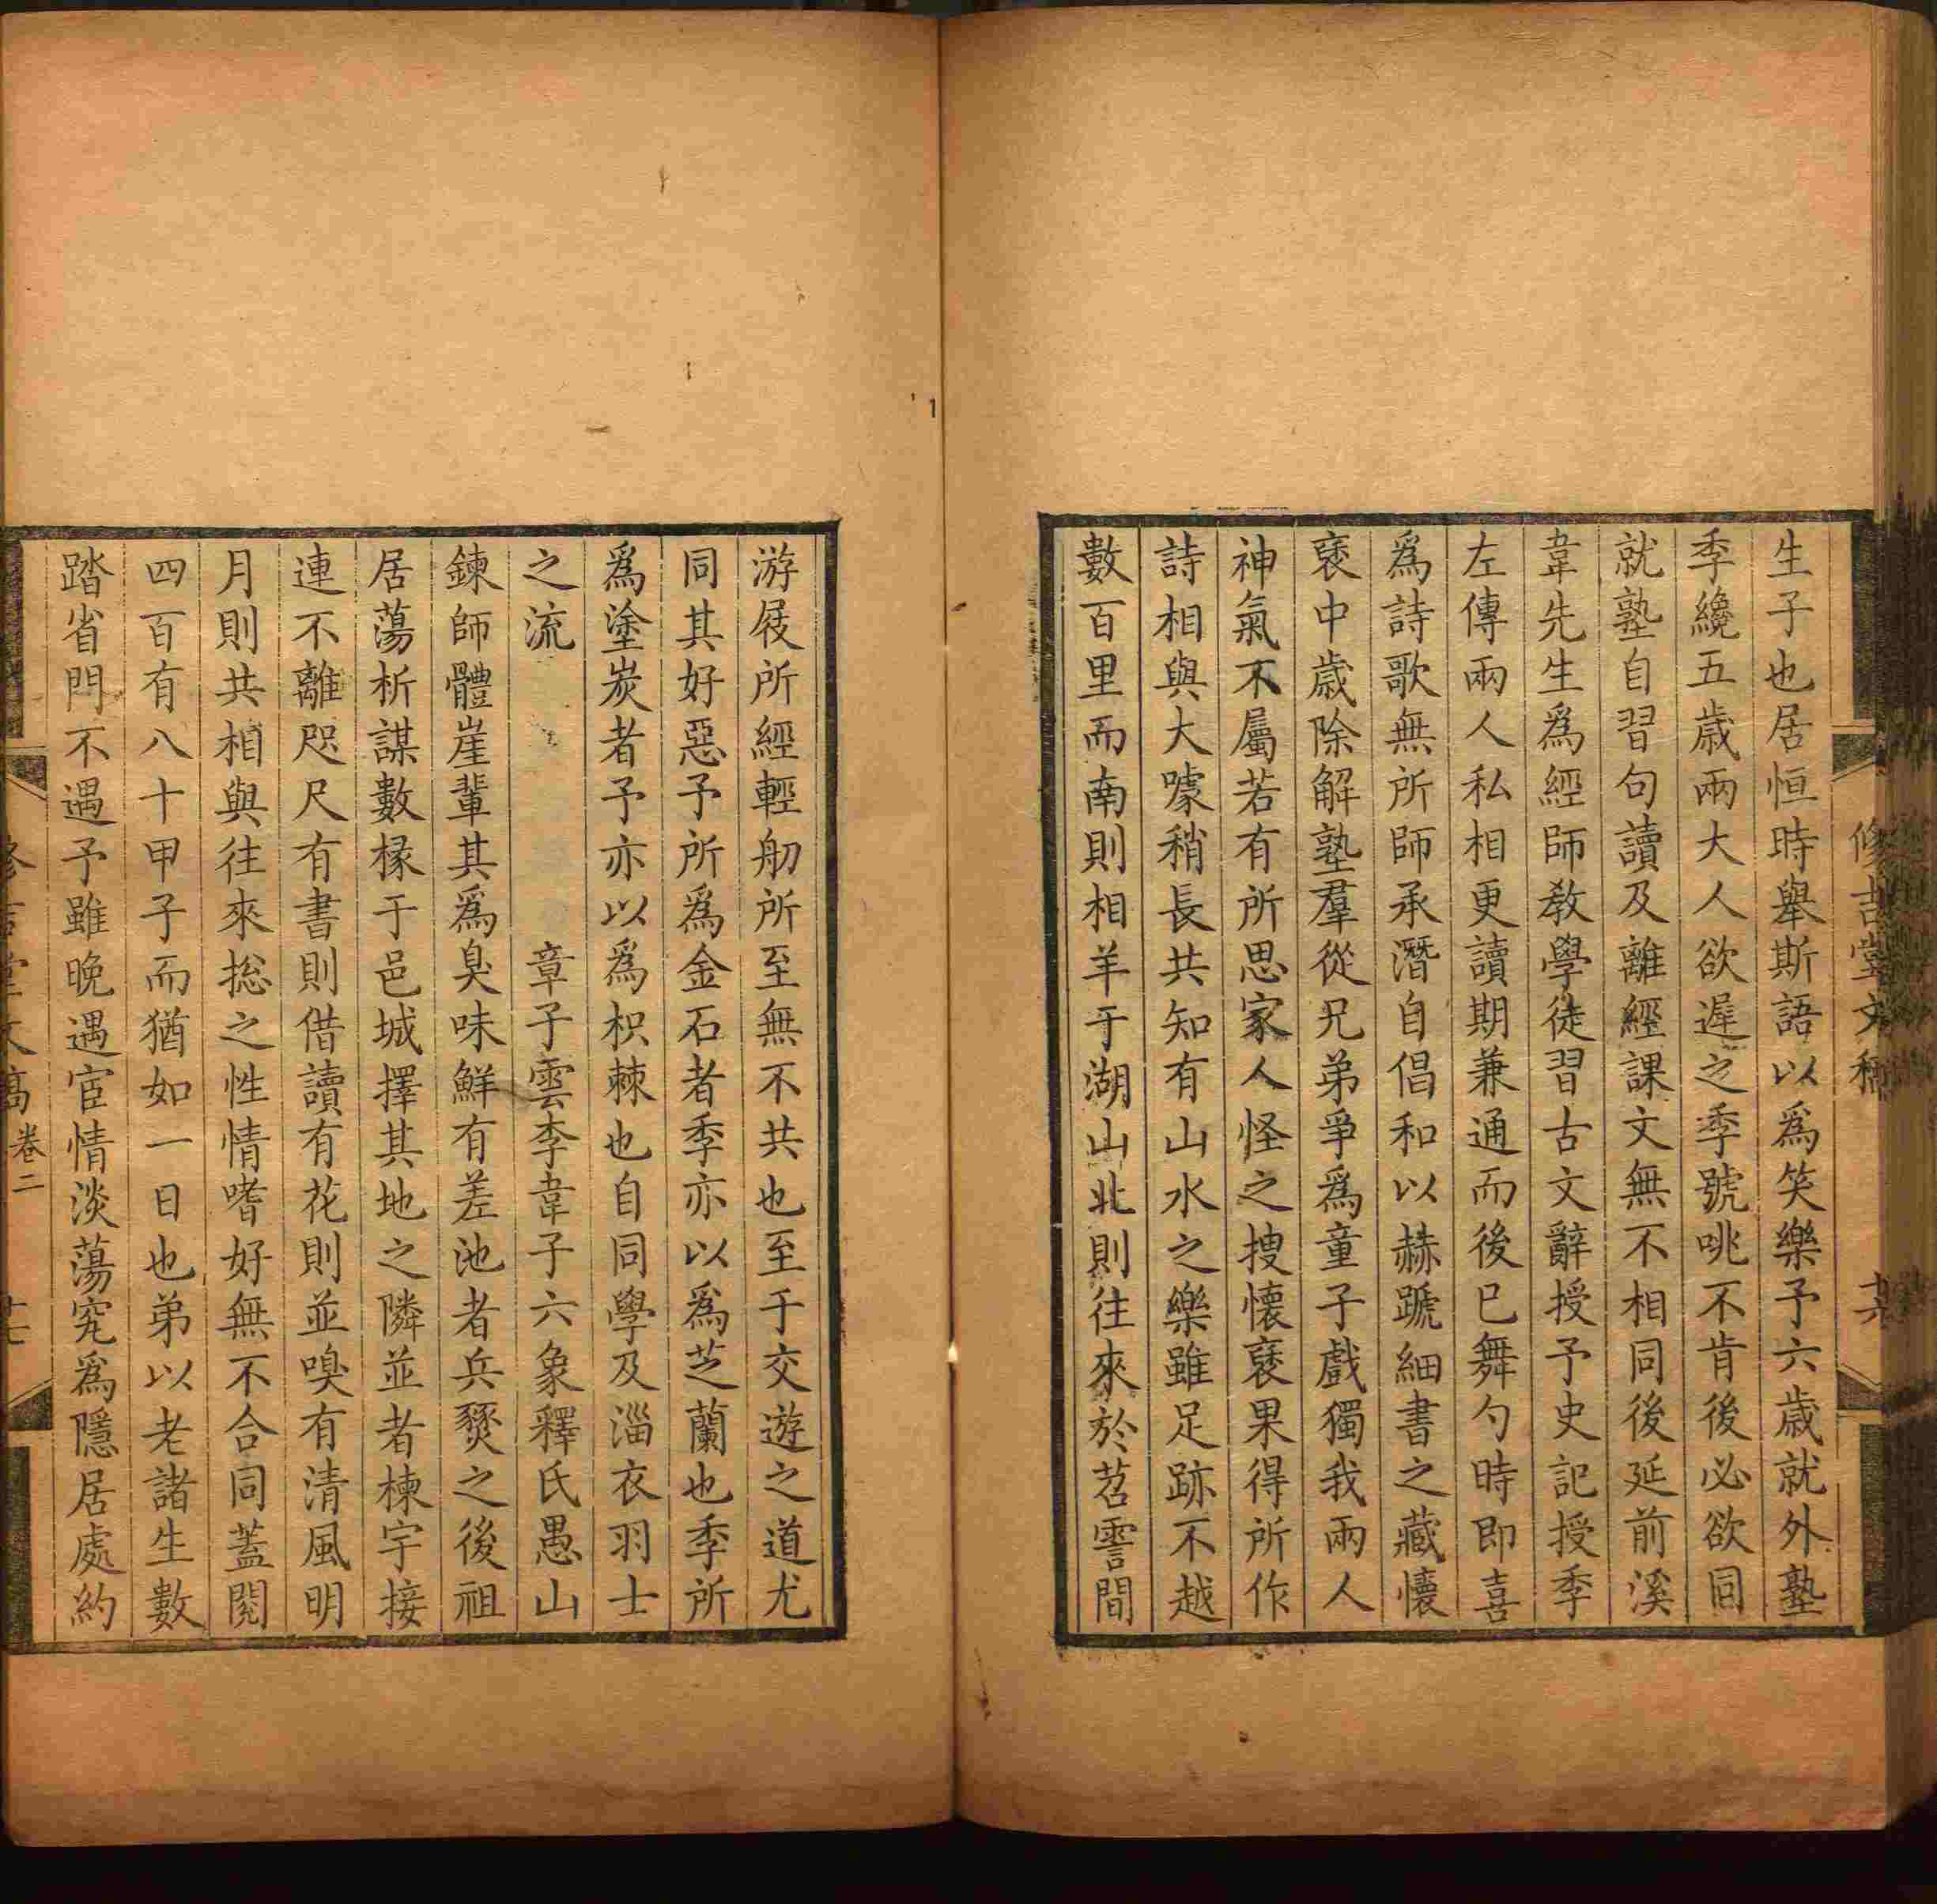 修吉堂文稿
十六
生子也居恒時舉斯語以爲笑樂予六歲就外塾
季纔五歲兩大人欲遲之季號咷不肯後必欲同
就塾自習句讀及離經課文無不相同後延前溪
韋先生爲經師教學徒習古文辭授予史記授季
左傳兩人私相更讀期兼通而後已舞勺時即喜
爲詩歌無所師承潛自倡和以赫蹏細書之藏懷
褱中歲除解塾羣從兄弟爭爲童子戲獨我兩人
神氣不屬若有所思家人怪之搜懷褱果得所作
詩相與大噱稍長共知有山水之樂雖足跡不越
數百里而南則相羊于湖山北則往來於苕霅間
游屐所經輕舠所至無不共也至于交遊之道尤
同其好惡予所爲金石者季亦以爲芝蘭也季所
爲塗炭者予亦以爲枳棘也自同學及淄衣羽士
之流 章子雲李韋子六象釋氏愚山
鍊師體崖輩其爲臭味鮮有差池者兵燹之後祖
居蕩析謀數椽于邑城擇其地之隣並者棟宇接
連不離咫尺有書則借讀有花則並嗅有清風明
月則共相與往來揔之性情嗜好無不合同蓋閱
四百有八十甲子而猶如一日也弟以老諸生數
踏省門不遇予雖晚遇宦情淡蕩究爲隱居處約
卷二